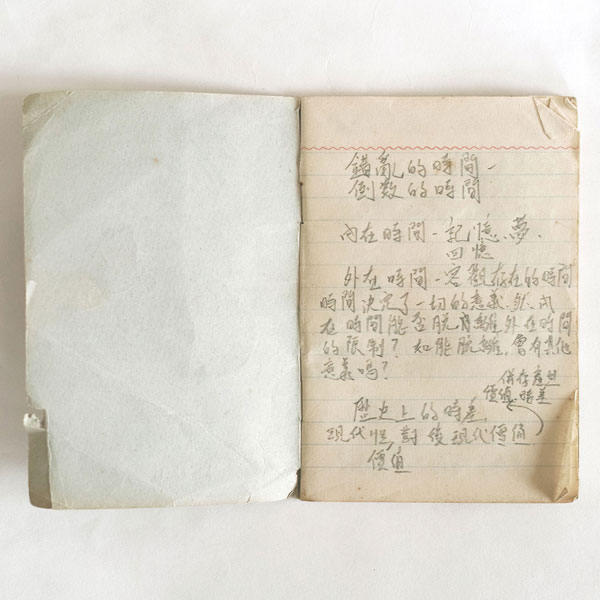 錯亂的時間－
倒數的時間
內在時間－記憶、夢、
回憶
外在時間－客觀存在的時間
時間決定了一切的意義,然,內
在時間能否脫離外在時間
的限制？如能脫離,會有其他
意義嗎？
併存產生
價值時差
歷史上的時差,
現代性,對後現代價值
價值